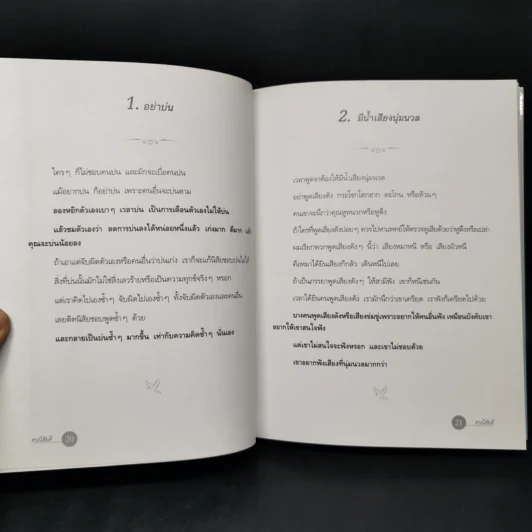 1. อย่าบ่น
ใครๆ ก็ไม่ชอบคนบ่น และมักจะเบื่อคนบ่น
แม้อยากบ่น ก็อย่าบ่น เพราะคนอื่นจะบ่นตาม
ลองหยิกตัวเองเบาๆ เวลาบ่น เป็นการเตือนตัวเองไม่ให้บ่น
แล้วชมตัวเองว่า ลดการบ่นลงได้หน่อยหนึ่งแล้ว เก่งมาก ดีมาก แล้ว
คุณจะบ่นน้อยลง
ถ้าเอาแต่จับผิดตัวเองหรือคนอื่นว่าบ่นเก่ง เราก็จะแก้นิสัยชอบบ่นไม่ได้
สิ่งที่บ่นนั้นมักไม่ใช่สิ่งเลวร้ายหรือเป็นความทุกข์จริงๆ หรอก
แต่เราคิดไปเองซ้ำๆ จับผิดไปเองซ้ำๆ ทั้งจับผิดตัวเองและคนอื่น
เลยติดนิสัยชอบพูดซ้ำๆ ด้วย
และกลายเป็นบ่นซ้ำๆ มากขึ้น เท่ากับความคิดซ้ำๆ นั่นเอง
คนมีเสน่ห์ 20
2. มีน้ำเสียงนุ่มนวล
เวลาพูดจาต้องให้มีน้ำเสียงนุ่มนวล
อย่าพูดเสียงดัง กระโชกโฮกฮาก ตะโกน หรือห้วนๆ
คนเขาจะนึกว่าคุณหูหนวกหรือหูตึง
ถ้าใครที่พูดเสียงดังบ่อยๆ ควรไปหาแพทย์ให้ตรวจหูเสียด้วยว่าหูตึงหรือเปล่า
ผมเรียกพวกพูดเสียงดังๆ นี้ว่า เสียงหมาหนี หรือ เสียงผัวหนี
คือหมาได้ยินเสียงก็กลัว เดินหนีไปเลย
ถ้าเป็นภรรยาพูดเสียงดังๆ ให้สามีฟัง เขาก็หนีเช่นกัน
เวลาได้ยินคนพูดเสียงดัง เรามักนึกว่าเขาเครียด เราฟังก็เครียดไปด้วย
บางคนพูดเสียงดังหรือเสียงข่มขู่เพราะอยากให้คนอื่นฟัง เหมือนบังคับเขา
อยากให้เขาสนใจฟัง
แต่เขาไม่สนใจจะฟังหรอก และเขาไม่ชอบด้วย
เขาอยากฟังเสียงที่นุ่มนวลมากกว่า
21 คนมีเสน่ห์